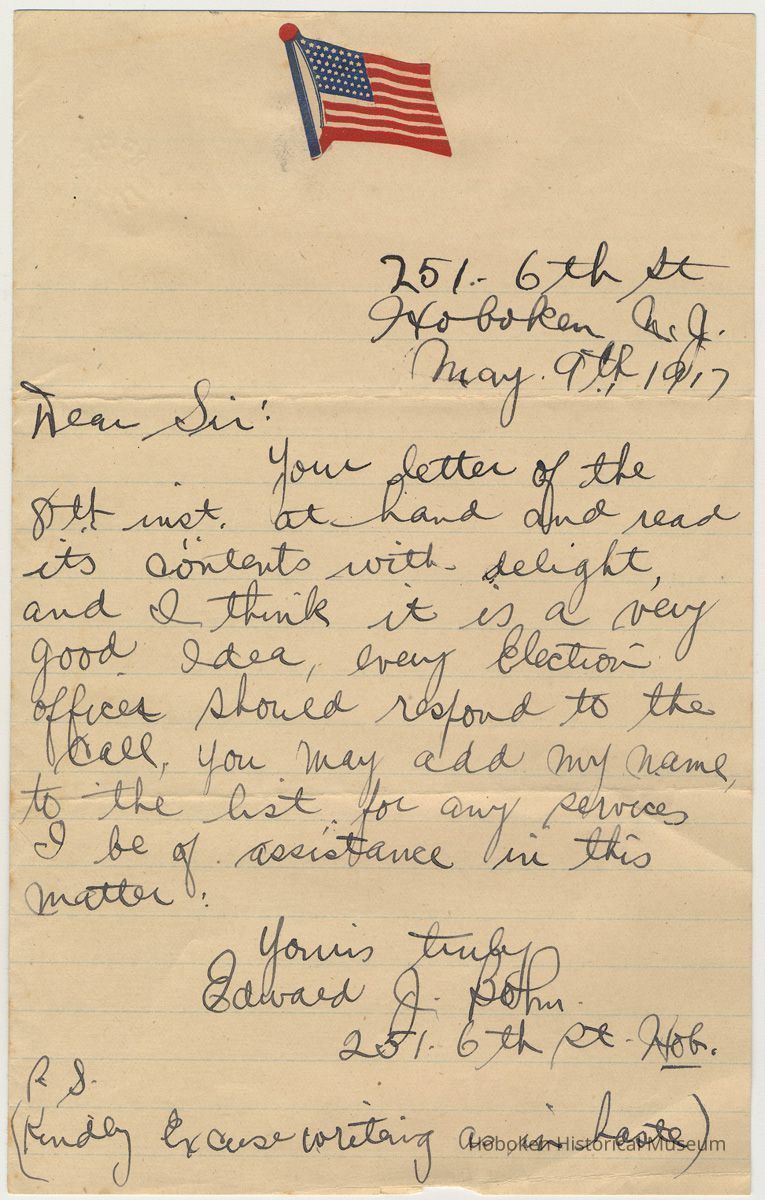 251. 6th St
Hoboken N.J.
May. 9th, 1917
Dear Sir:
Your letter of the
8th inst. at hand and read
its contents with delight,
and I think it is a very
good Idea, every Election
officer should respond to the
Call, you may add my name,
to the list for any services
I be of assistance in this
matter.
Yours truly
Edward J.
251. 6th St. Hob.
P. S.
(Kindly Excuse writing as in haste)
Hoboken Historical Museum